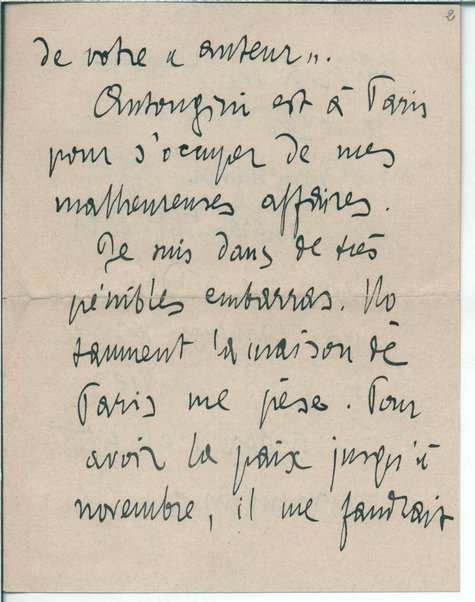 2
de votre « auteur ».
Antongini est à Paris
pour s'occuper de mes
malheureuses affaires.
Je suis dans de très
pénibles embarras. No
tamment la maison de
Paris me pèse. Pour
avoir la paix jusqu'à
novembre, il me faudrait